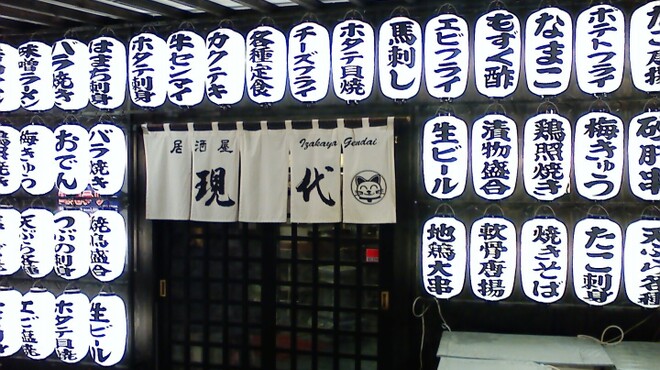 味噌ラーメン
バラ焼き
はまち刺身
ホタテ刺身
牛センマイ
カクテキ
各種定食
チーズフライ
ホタテ貝焼
馬刺し
エビフライ
もずく酢
なまこ
ポテトフライ
たこ唐揚
梅きゅう
おでん
バラ焼き
居酒屋
現代
Izakaya Gendai
生ビール
漬物盛合
鶏照焼き
梅きゅう
砂肝串
つぶの刺身
焼鳥盛合
地鶏大串
軟骨唐揚
焼きそば
たこ刺身
天ぷら各種
ホタテ貝焼
生ビール